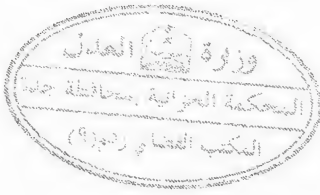 وزارة العدل
المحكمة الجزائية بمحافظة جدة
المكتب القضائي